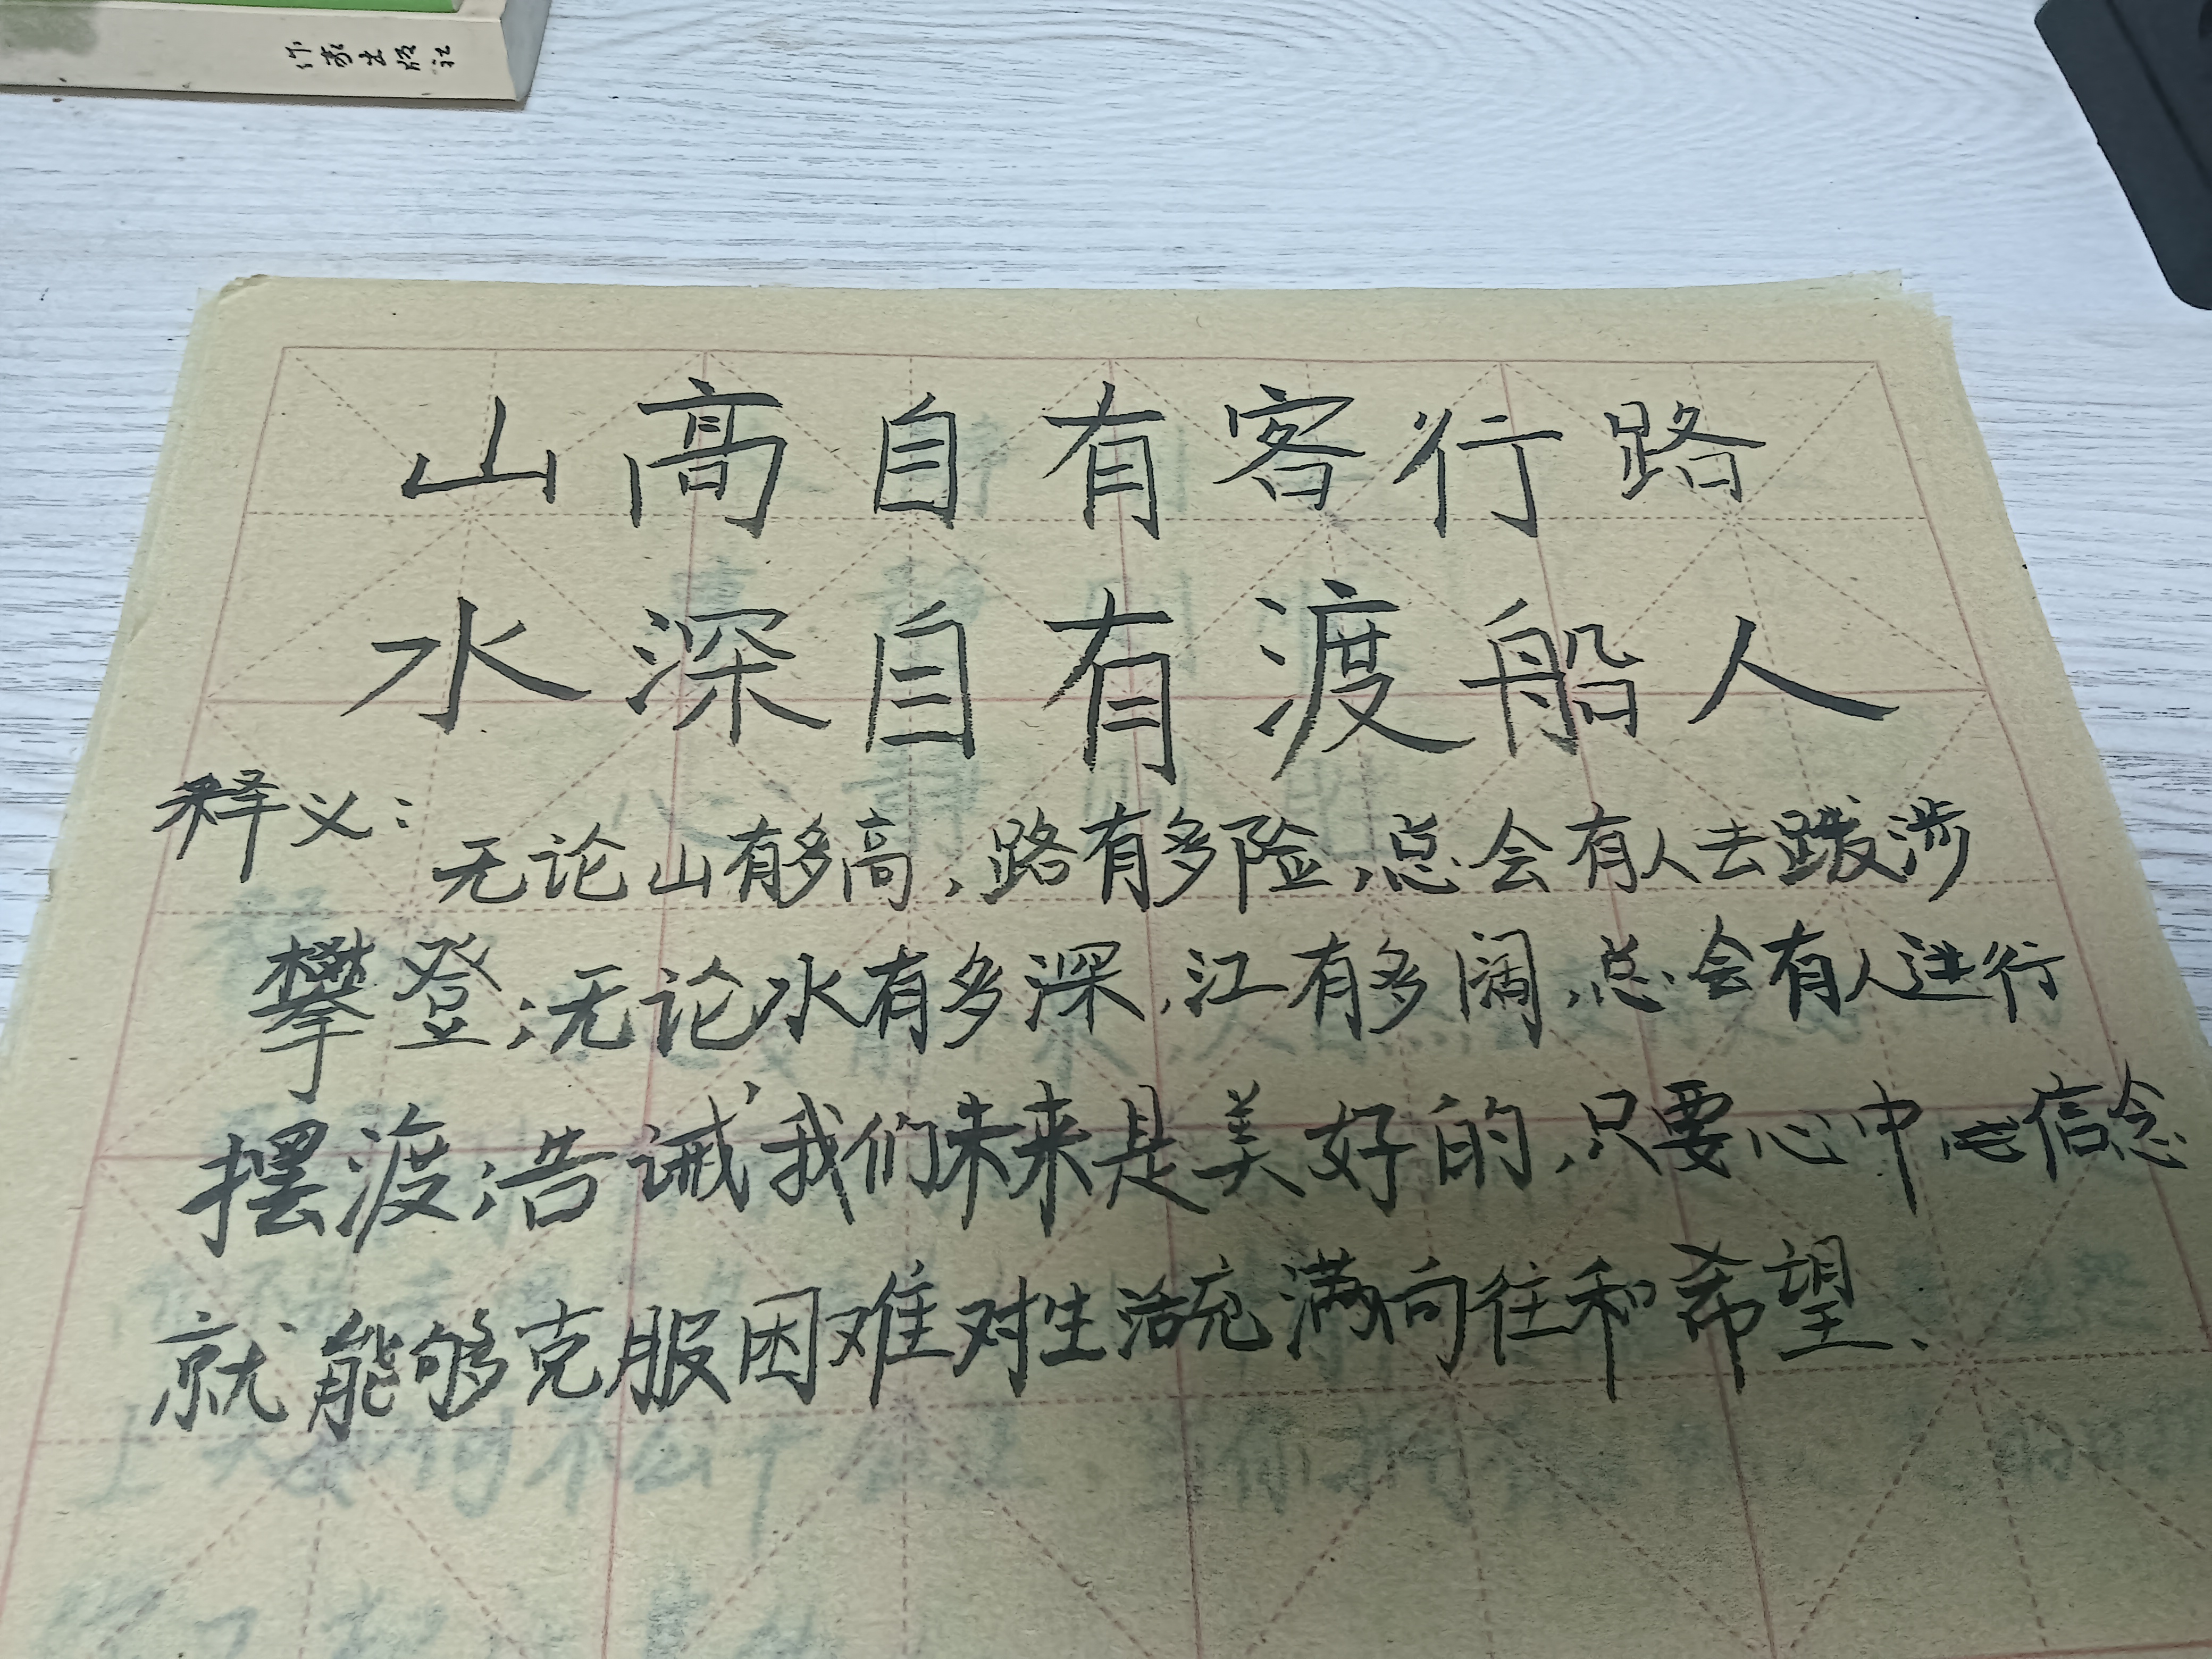 作家出版社
山高自有客行路
水深自有渡船人
释义：
无论山有多高，路有多险，总会有人去跋涉
攀登；无论水有多深，江有多阔，总会有人进行
摆渡浩诫，我们未来是美好的，只要心中信念
就能够克服困难对生活充满向往和希望、